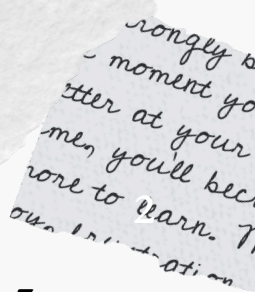 rongly b
moment yo
etter at your
me, you'll bec
more to learn.
2